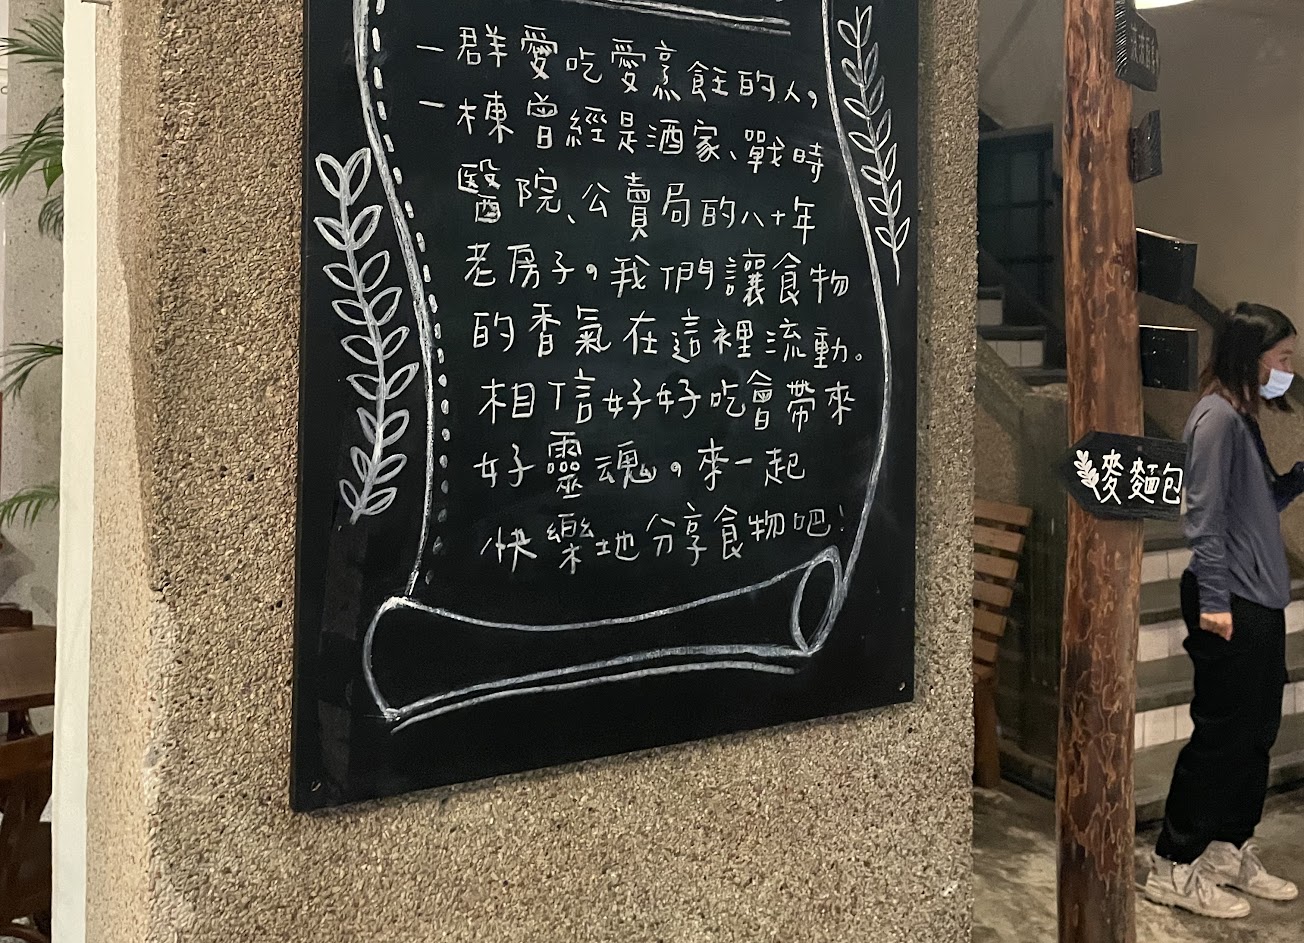 一群愛吃愛烹飪的人，
一棟曾經是酒家、戰時
醫院、公賣局的八十年
老房子。我們讓食物
的香氣在這裡流動。
相信好好吃會帶來
好靈魂。來一起
快樂地分享食物吧！
麥麵包